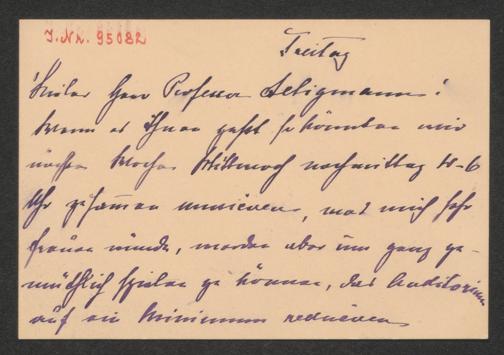 J.Nr. 95082
Freitag
Lieber Herr Professor Seligmann!
Wenn es Ihnen paßt so könnten wir
nächste Woche Mittwoch nachmittag 4-6
Uhr zusammen musicieren, was mich sehr
freuen würde, werden aber um ganz ge-
mütlich spielen zu können, das Auditorium
auf ein Minimum reducieren